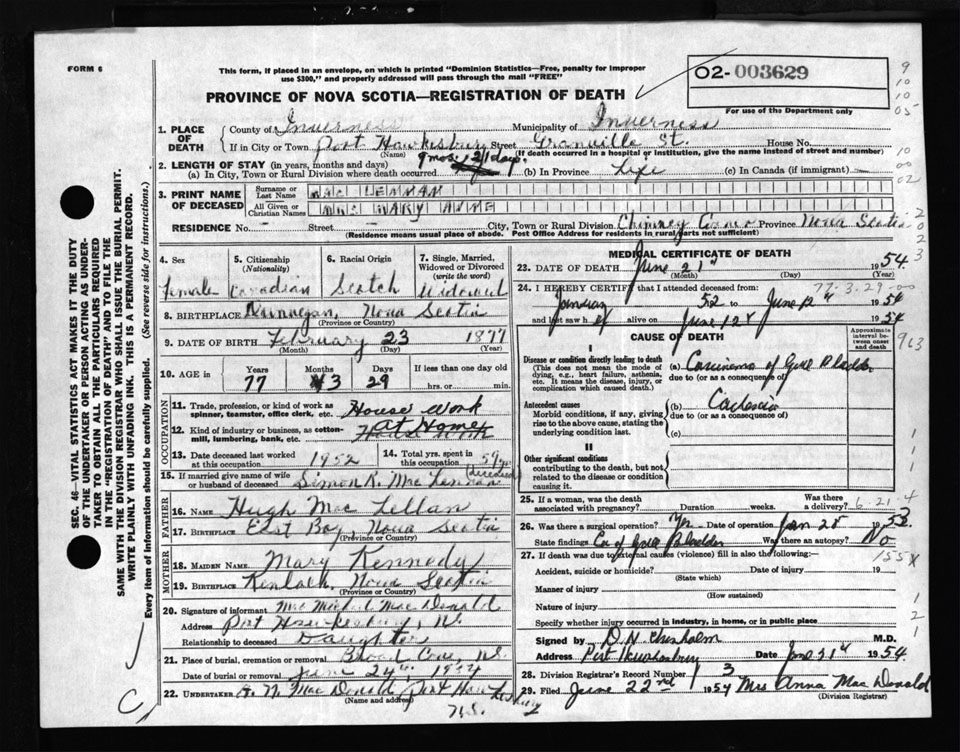 FORM 6
This form, if placed in an envelope, on which is printed "Dominion Statistics—Free, penalty for improper
use $300," and properly addressed will pass through the mail "FREE"
O2- 003629
For use of the Department only
PROVINCE OF NOVA SCOTIA—REGISTRATION OF DEATH
9
10
10
05
1. PLACE OF DEATH County of Inverness Municipality of Inverness
If in City or Town Port Hawkesbury Street Granville St. House No.
(Name) (If death occurred in a hospital or institution, give the name instead of street and number)
2. LENGTH OF STAY (in years, months and days) 9 mos. 21 days.
(a) In City, Town or Rural Division where death occurred. (b) In Province Life (c) In Canada (if immigrant)
10
00
02
3. PRINT NAME OF DECEASED
Surname or Last Name MAC LENNAN
All Given or Christian Names MRS MARY ANNE
RESIDENCE No. Street City, Town or Rural Division Chimney Corner Province Nova Scotia
(Residence means usual place of abode. Post Office Address for residents in rural parts not sufficient)
2
0
2
3
4. Sex Female
5. Citizenship (Nationality) Canadian
6. Racial Origin Scotch
7. Single, Married, Widowed or Divorced (write the word) Widowed
8. BIRTHPLACE Nova Scotia
(Province or Country)
9. DATE OF BIRTH February 23 1877
(Month) (Day) (Year)
10. AGE in Years 77 Months 3 Days 29 If less than one day old hrs. or min.
OCCUPATION
11. Trade, profession, or kind of work as spinner, teamster, office clerk, etc. House work
12. Kind of industry or business, as cotton-mill, lumbering, bank, etc. at Home
13. Date deceased last worked at this occupation 1952
14. Total yrs. spent in this occupation 59 yrs
15. If married give name of wife or husband of deceased Simon R. Mac Lennan (deceased)
FATHER
16. Name Hugh Mac Lellan
17. Birthplace East Bay, Nova Scotia
(Province or Country)
MOTHER
18. Maiden Name Mary Kennedy
19. Birthplace Kenloch, Nova Scotia
(Province or Country)
20. Signature of informant Mrs Michael Mac Donald
Address Port Hawkesbury, N.
Relationship to deceased Daughter
21. Place of burial, cremation or removal Broad Cove, N.S.
Date of burial or removal June 24th, 1954
22. Undertaker N. Mac Donald, Port Hawkesbury
(Name and address)
N.S.
MEDICAL CERTIFICATE OF DEATH
23. DATE OF DEATH June 21st 1954
(Month) (Day) (Year)
24. I HEREBY CERTIFY that I attended deceased from: 77-3-29-00
January 52 to June 12th 1954
and last saw h alive on June 12th 1954
CAUSE OF DEATH
Approximate interval between onset and death
963
I
Disease or condition directly leading to death
(This does not mean the mode of dying, e.g., heart failure, asthenia, etc. It means the disease, injury, or complication which caused death.)
(a) Carcinoma of Gall Bladder
due to (or as a consequence of)
Antecedent causes
Morbid conditions, if any, giving rise to the above cause, stating the underlying condition last.
(b)
due to (or as a consequence of)
(c)
II
Other significant conditions
contributing to the death, but not related to the disease or condition causing it.
25. If a woman, was the death associated with pregnancy? Duration weeks. Was there a delivery? 6-21-4
26. Was there a surgical operation? Yes Date of operation Jan 28 1952
State findings Ca of Gall Bladder Was there an autopsy? No
155X
27. If death was due to external causes (violence) fill in also the following:—
Accident, suicide or homicide? Date of injury 19
(State which)
Manner of injury
(How sustained)
Nature of injury
Specify whether injury occurred in industry, in home, or in public place
Signed by D.N. Chisholm M.D.
Address Port Hawkesbury Date June 21st 1954.
28. Division Registrar's Record Number 3
29. Filed June 22nd 1954 Mrs Anna Mac Donald
(Division Registrar)
SEC. 46—VITAL STATISTICS ACT MAKES IT THE DUTY
OF THE UNDERTAKER OR PERSON ACTING AS UNDER-
TAKER TO OBTAIN ALL THE PARTICULARS REQUIRED
IN THE "REGISTRATION OF DEATH" AND TO FILE THE
SAME WITH THE DIVISION REGISTRAR WHO SHALL ISSUE THE BURIAL PERMIT.
WRITE PLAINLY WITH UNFADING INK. THIS IS A PERMANENT RECORD.
Every item of information should be carefully supplied. (See reverse side for instructions.)